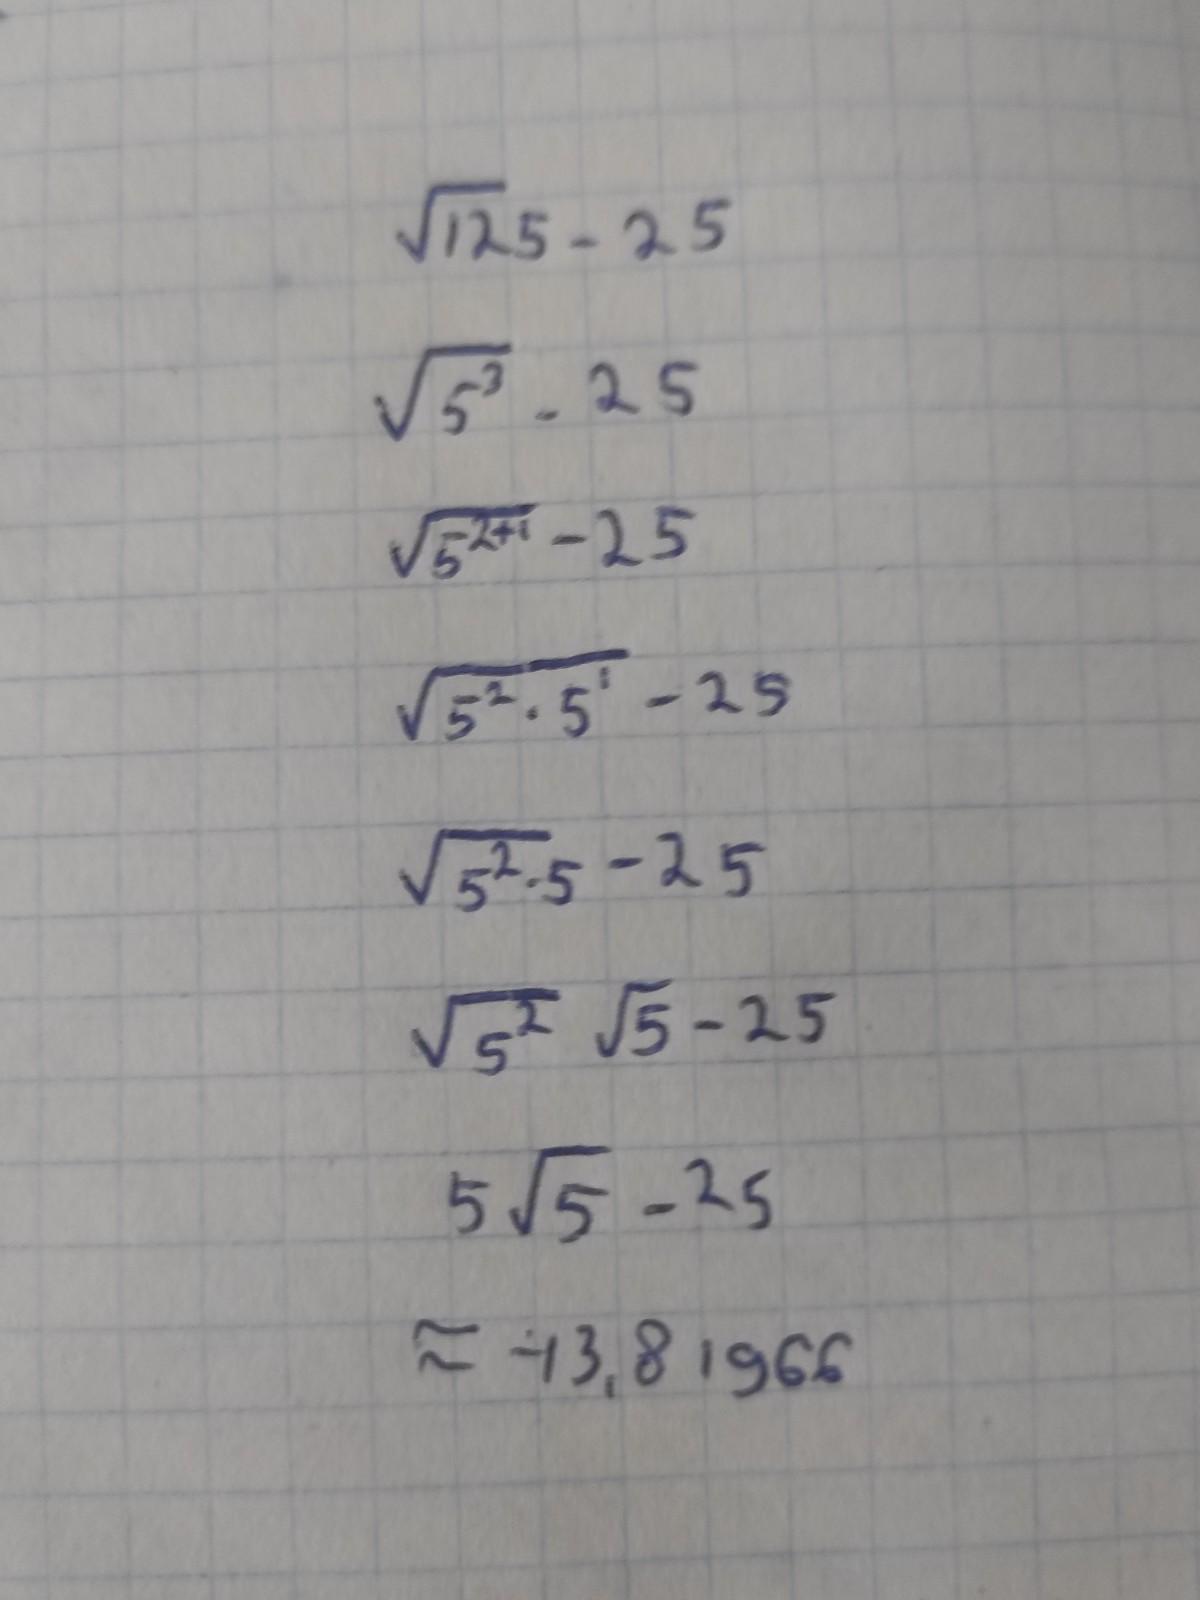 √125 - 25
√5³ - 25
√5²⁺¹ - 25
√5² · 5¹ - 25
√5² · 5 - 25
√5² √5 - 25
5√5 - 25
≈ -13,81966